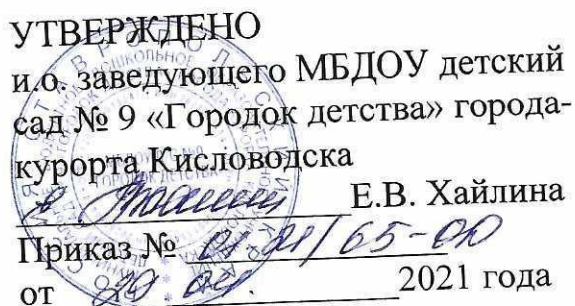 УТВЕРЖДЕНО
и.о. заведующего МБДОУ детский
сад № 9 «Городок детства» города-
курорта Кисловодска
Е.В. Хайлина
Приказ № 01-21/65-ОД
от 2021 года